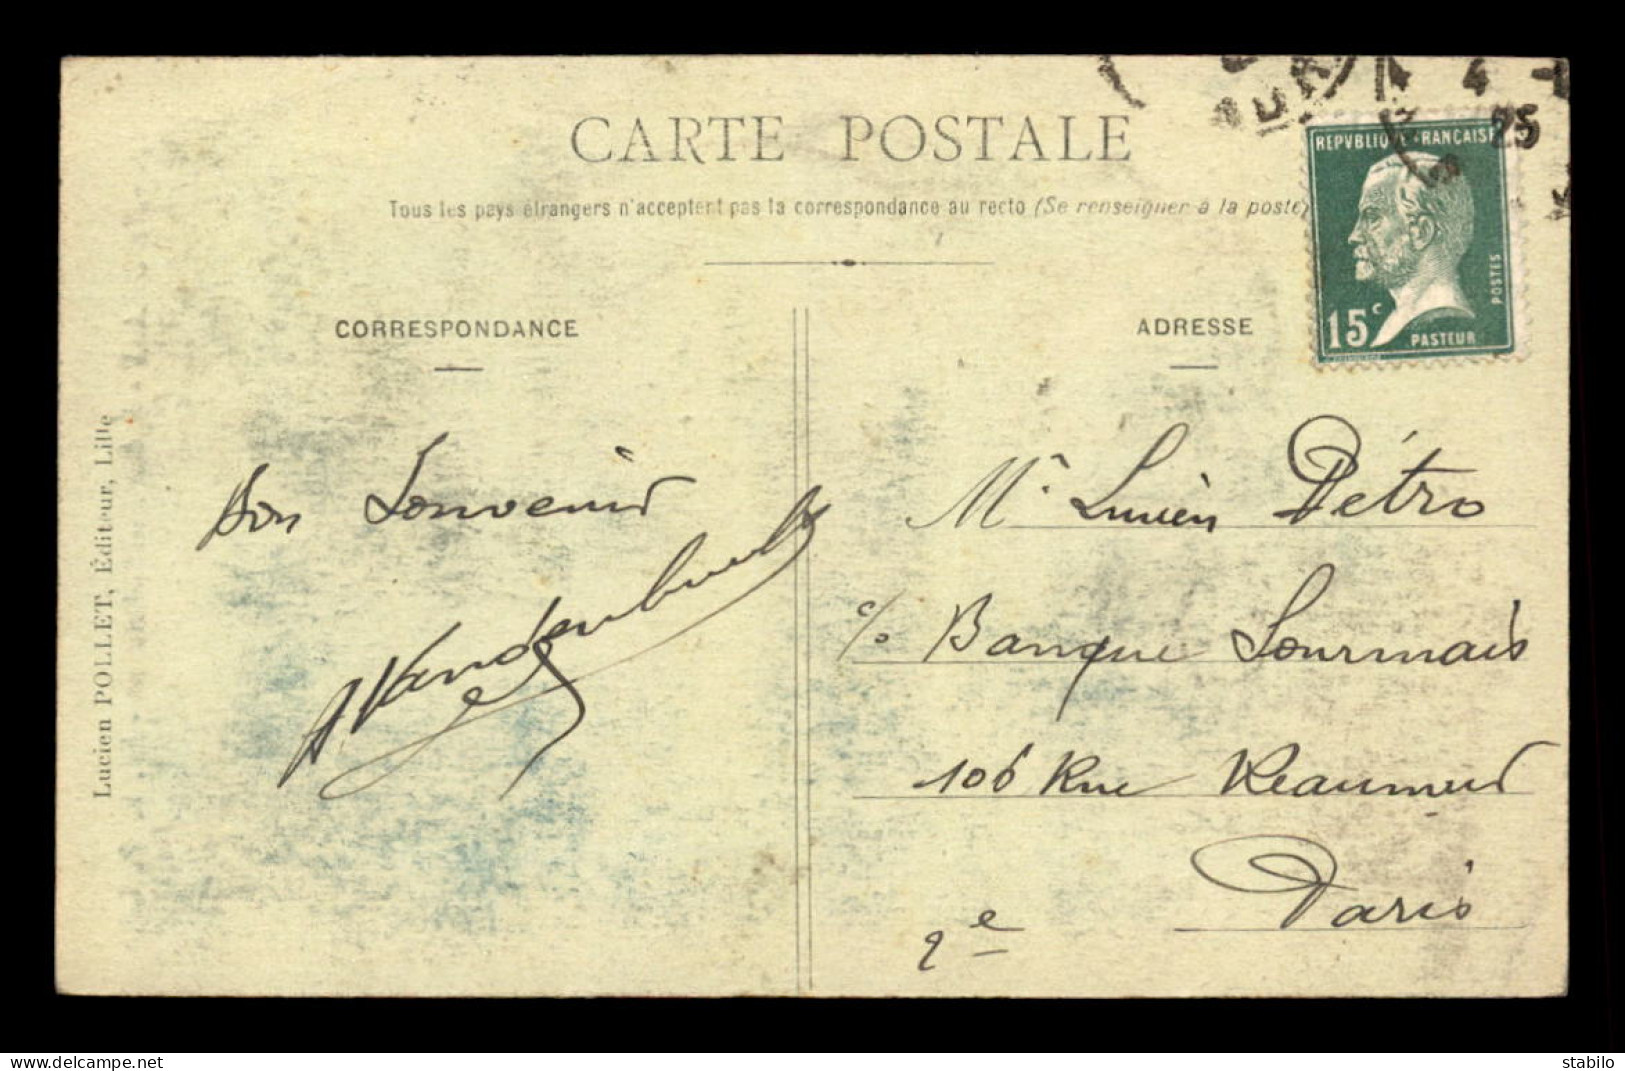 CARTE POSTALE
Tous les pays étrangers n'acceptent pas la correspondance au recto (Se renseigner à la poste)
CORRESPONDANCE
ADRESSE
REPVBLIQUE FRANCAISE
POSTES
15c
PASTEUR
4
25
Lucien POLLET, Éditeur, Lille
Bon Souvenir
Mr Lucien Pétro
c/o Banque Sourmais
106 Rue Reaumur
Paris
2e
delcampe.net
stabilo